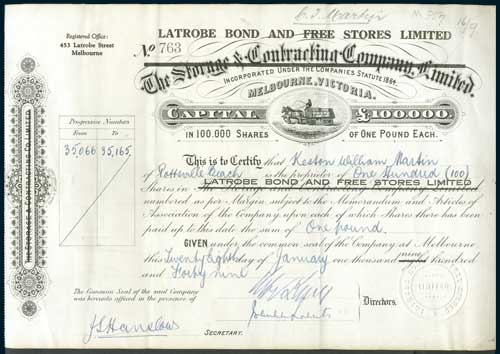 C. J. Martin
Registered Office:
453 Latrobe Street
Melbourne
LATROBE BOND AND FREE STORES LIMITED
No 763
The Storage & Contracting Company, Limited.
INCORPORATED UNDER THE COMPANIES STATUTE 1864.
MELBOURNE, VICTORIA.
CAPITAL £100,000.
IN 100,000 SHARES OF ONE POUND EACH.
Progressive Numbers
From To
35,066 35,165
This is to Certify that Keston William Martin
of Beach is the proprietor of One Hundred (100)
Shares in The Storage & Contracting Company Limited
LATROBE BOND AND FREE STORES LIMITED
numbered as per Margin subject to the Memorandum and Articles of
Association of the Company, upon each of which Shares there has been
paid up to this date the sum of One pound.
GIVEN under the common seal of the Company at Melbourne
this Twenty eighth day of January one thousand nine hundred
and Forty nine
The Common Seal of the said Company
was hereunto affixed in the presence of
Directors.
J.S. Hanslow
SECRETARY.
LATROBE BOND AND FREE STORES LIMITED